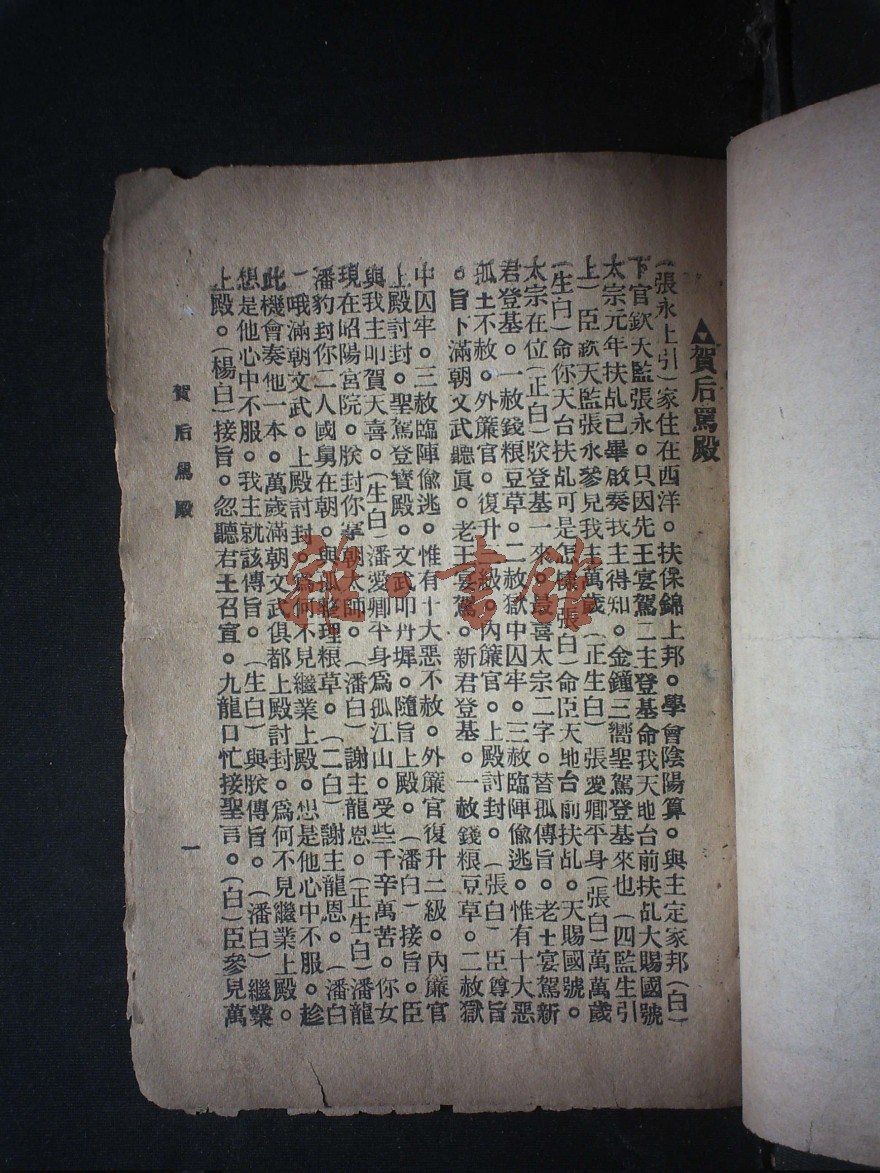 ▲賀后罵殿
(張永上引)家住在西洋。扶保錦上邦。學會陰陽算。與主定家邦(白)
下官欽大監張永。只因先王宴駕二主登基命我天地台前扶乩大賜國號
太宗元年扶乩已畢啟奏我主得知。金鐘三嚮聖駕登基來也(四監生引
上)臣欽天監張永參見我主萬歲(正生白)張愛卿平身(張白)萬萬歲
(生白)命你天台扶乩可是怎樣(張白)命臣天地台前扶乩。天賜國號。
太宗在位(正白)朕登基一來。最喜太宗二字。替孤傳旨。老王宴駕新
君登基。一赦錢粮豆草。二赦獄中囚牢。三赦臨陣偷逃。惟有十大惡
孤土不赦。外簾官。復升級。內簾官。上殿討封。(張白)臣尊旨
。旨下滿朝文武聽眞。老王宴駕。新君登基。一赦錢粮豆草。二赦獄
中囚牢。三赦臨陣偷逃。惟有十大恶不赦。外簾官復升二級。內簾官
上殿討封。聖駕登寶殿。文武叩丹墀。隨旨上殿。(潘白)接旨。臣
與我主叩賀天喜。(生白)潘愛卿平身爲孤江山。受些千辛萬苦。你女
現在昭陽宮院。朕封你掌朝太師。(潘白)謝主龍恩。(正生白)潘龍
潘豹封你二人國舅在朝。與孤整理粮草。(二白)謝主龍恩。(潘白
)哦滿朝文武。上殿討封。爲何不見繼業上殿。想是他心中不服。趁
此機會奏他一本。萬歲滿朝文武俱都上殿討封。爲何不見繼業上殿。
想是他心中不服。我主就該傳旨。(生白)與朕傳旨。(潘白)繼業
上殿。(楊白)接旨。忽聽右王召宣。九龍口忙接聖言。(白)臣參見萬
賀后罵殿
一
雜·書館